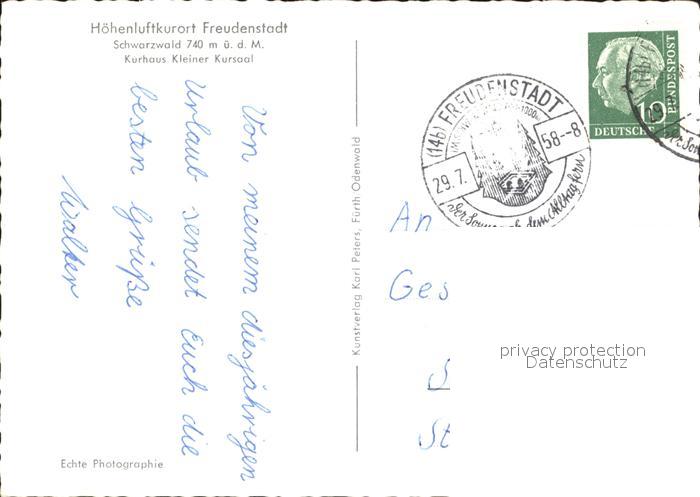 Höhenluftkurort Freudenstadt
Schwarzwald 740 m ü. d. M.
Kurhaus Kleiner Kursaal
Von meinem diesjährigen
Urlaub sendet Euch die
besten Grüße
Walter
Echte Photographie
Kunstverlag Karl Peters, Fürth Odenwald
(14b) FREUDENSTADT
29.7.
58--8
dem Alltag fern
10
BUNDESPOST
DEUTSCHE
An
Ges
S
St
privacy protection
Datenschutz